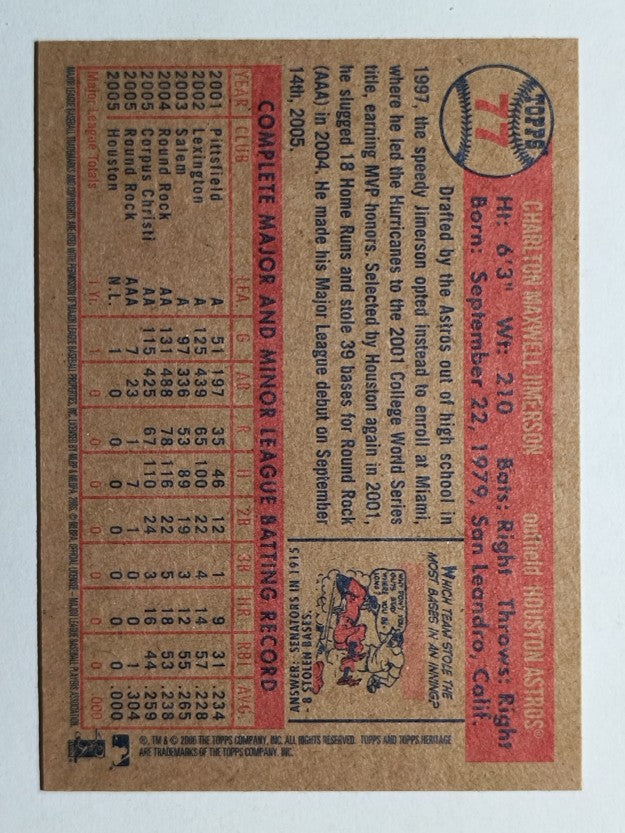 TOPPS
77
CHARLTON MAXWELL JIMERSON outfield HOUSTON ASTROS®
Ht: 6'3" Wt: 210 Bats: Right Throws: Right
Born: September 22, 1979, San Leandro, Calif.
Drafted by the Astros out of high school in
1997, the speedy Jimerson opted instead to enroll at Miami,
where he led the Hurricanes to the 2001 College World Series
title, earning MVP honors. Selected by Houston again in 2001,
he slugged 18 Home Runs and stole 39 bases for Round Rock
(AAA) in 2004. He made his Major League debut on September
14th, 2005.
WHICH TEAM STOLE THE
MOST BASES IN AN INNING?
WHY DON'T YOU
GUYS STAY
WHERE YOU BE-
LONG
ANSWER: SENATORS IN 1915
8 STOLEN BASES
COMPLETE MAJOR AND MINOR LEAGUE BATTING RECORD
YEAR CLUB LEA. G AB R H 2B 3B HR RBI AVG.
2001 Pittsfield A 51 197 35 46 12 1 9 31 .234
2002 Lexington A 125 439 65 100 22 4 14 57 .228
2003 Salem A 97 336 53 89 19 3 12 55 .265
2004 Round Rock AA 131 488 78 116 22 5 18 53 .238
2005 Corpus Christi AA 115 425 67 110 24 3 16 44 .259
2005 Round Rock AAA 7 23 1 7 1 0 0 1 .304
2005 Houston N.L. 1 0 0 0 0 0 0 0 .000
Major League Totals 1 Yr. 1 0 0 0 0 0 0 0 .000
®, TM & © 2006 THE TOPPS COMPANY, INC. ALL RIGHTS RESERVED. TOPPS AND TOPPS HERITAGE
ARE TRADEMARKS OF THE TOPPS COMPANY, INC.